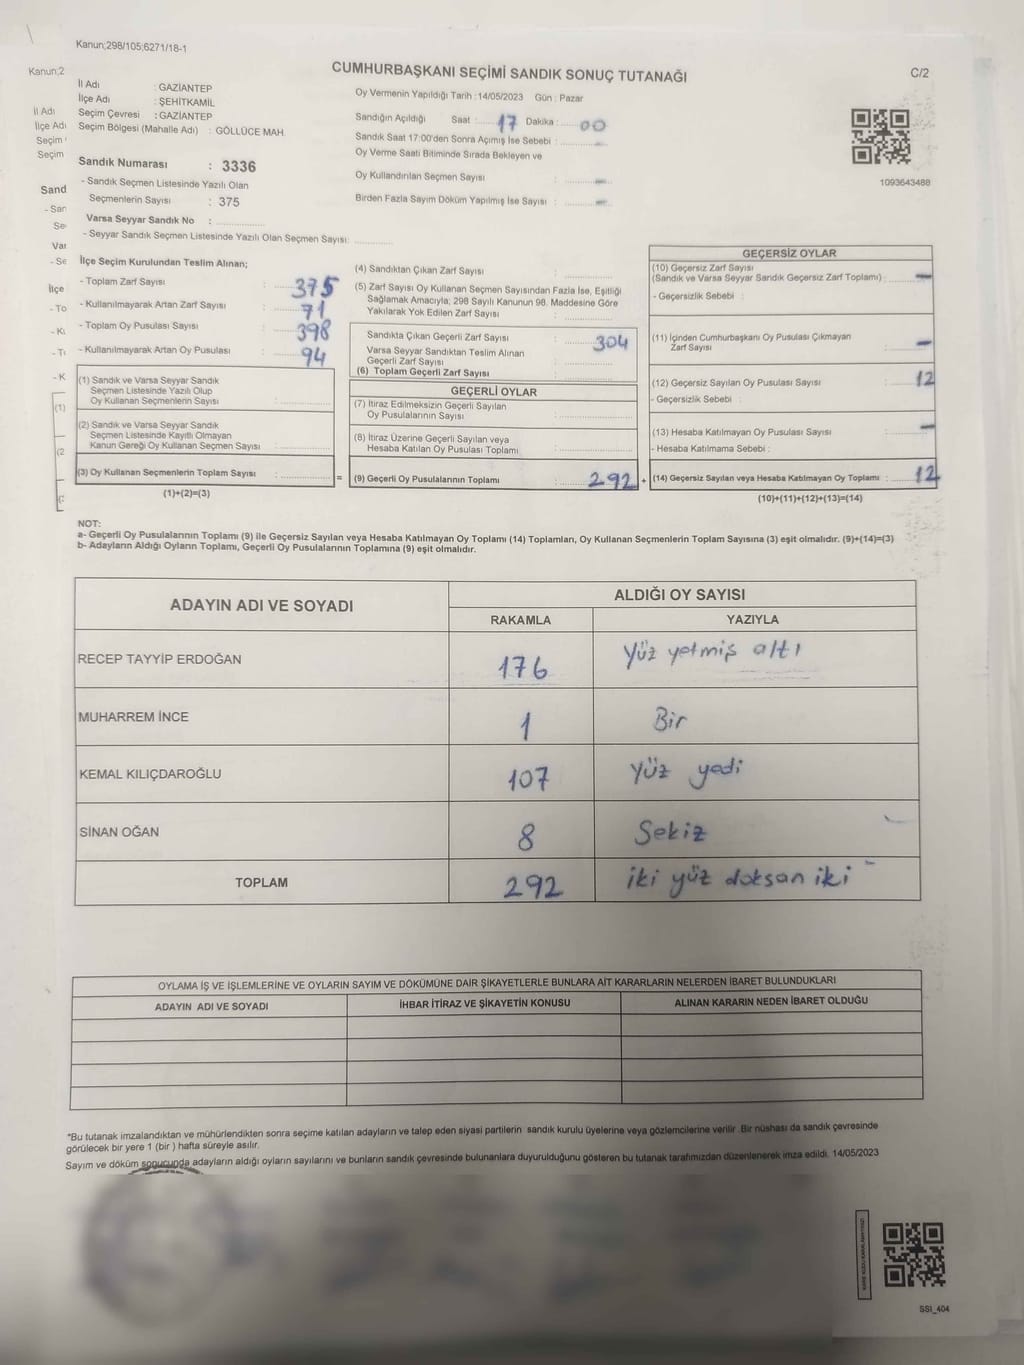 Kanun;298/105;6271/18-1
Kanun;2
CUMHURBAŞKANI SEÇİMİ SANDIK SONUÇ TUTANAĞI
C/2
İl Adı : GAZİANTEP
İlçe Adı : ŞEHİTKAMİL
Seçim Çevresi : GAZİANTEP
Seçim Bölgesi (Mahalle Adı) : GÖLLÜCE MAH.
Sandık Numarası : 3336
- Sandık Seçmen Listesinde Yazılı Olan
Seçmenlerin Sayısı : 375
Varsa Seyyar Sandık No :
- Seyyar Sandık Seçmen Listesinde Yazılı Olan Seçmen Sayısı:
İl Adı
İlçe Adı
Seçim
Seçim
Sand
- San
Se
Var
- Se
İlçe
- To
- Kı
- T
- K
(1)
(2
Oy Vermenin Yapıldığı Tarih : 14/05/2023 Gün : Pazar
Sandığın Açıldığı Saat : 17 Dakika : 00
Sandık Saat 17:00'den Sonra Açımış İse Sebebi : -
Oy Verme Saati Bitiminde Sırada Bekleyen ve
Oy Kullandırılan Seçmen Sayısı : -
Birden Fazla Sayım Döküm Yapılmış İse Sayısı : -
1093643488
İlçe Seçim Kurulundan Teslim Alınan;
- Toplam Zarf Sayısı : 375
- Kullanılmayarak Artan Zarf Sayısı : 71
- Toplam Oy Pusulası Sayısı : 398
- Kullanılmayarak Artan Oy Pusulası : 94
(1) Sandık ve Varsa Seyyar Sandık
Seçmen Listesinde Yazılı Olup
Oy Kullanan Seçmenlerin Sayısı :
(2) Sandık ve Varsa Seyyar Sandık
Seçmen Listesinde Kayıtlı Olmayan
Kanun Gereği Oy Kullanan Seçmen Sayısı :
(3) Oy Kullanan Seçmenlerin Toplam Sayısı :
(1)+(2)=(3)
=
(4) Sandıktan Çıkan Zarf Sayısı :
(5) Zarf Sayısı Oy Kullanan Seçmen Sayısından Fazla İse, Eşitliği
Sağlamak Amacıyla; 298 Sayılı Kanunun 98. Maddesine Göre
Yakılarak Yok Edilen Zarf Sayısı :
Sandıkta Çıkan Geçerli Zarf Sayısı : 304
Varsa Seyyar Sandıktan Teslim Alınan
Geçerli Zarf Sayısı :
(6) Toplam Geçerli Zarf Sayısı :
GEÇERLİ OYLAR
(7) İtiraz Edilmeksizin Geçerli Sayılan
Oy Pusulalarının Sayısı :
(8) İtiraz Üzerine Geçerli Sayılan veya
Hesaba Katılan Oy Pusulası Toplamı :
(9) Geçerli Oy Pusulalarının Toplamı : 292
+
GEÇERSİZ OYLAR
(10) Geçersiz Zarf Sayısı
(Sandık ve Varsa Seyyar Sandık Geçersiz Zarf Toplamı) : -
- Geçersizlik Sebebi :
(11) İçinden Cumhurbaşkanı Oy Pusulası Çıkmayan
Zarf Sayısı : -
(12) Geçersiz Sayılan Oy Pusulası Sayısı : 12
- Geçersizlik Sebebi :
(13) Hesaba Katılmayan Oy Pusulası Sayısı : -
- Hesaba Katılmama Sebebi :
(14) Geçersiz Sayılan veya Hesaba Katılmayan Oy Toplamı : 12
(10)+(11)+(12)+(13)=(14)
NOT:
a- Geçerli Oy Pusulalarının Toplamı (9) ile Geçersiz Sayılan veya Hesaba Katılmayan Oy Toplamı (14) Toplamları, Oy Kullanan Seçmenlerin Toplam Sayısına (3) eşit olmalıdır. (9)+(14)=(3)
b- Adayların Aldığı Oyların Toplamı, Geçerli Oy Pusulalarının Toplamına (9) eşit olmalıdır.
ADAYIN ADI VE SOYADI
ALDIĞI OY SAYISI
RAKAMLA YAZIYLA
RECEP TAYYİP ERDOĞAN 176 Yüz yetmiş altı
MUHARREM İNCE 1 Bir
KEMAL KILIÇDAROĞLU 107 Yüz yedi
SİNAN OĞAN 8 Sekiz
TOPLAM 292 iki yüz doksan iki
OYLAMA İŞ VE İŞLEMLERİNE VE OYLARIN SAYIM VE DÖKÜMÜNE DAİR ŞİKAYETLERLE BUNLARA AİT KARARLARIN NELERDEN İBARET BULUNDUKLARI
ADAYIN ADI VE SOYADI İHBAR İTİRAZ VE ŞİKAYETİN KONUSU ALINAN KARARIN NEDEN İBARET OLDUĞU
*Bu tutanak imzalandıktan ve mühürlendikten sonra seçime katılan adayların ve talep eden siyasi partilerin sandık kurulu üyelerine veya gözlemcilerine verilir. Bir nüshası da sandık çevresinde
görülecek bir yere 1 (bir ) hafta süreyle asılır.
Sayım ve döküm sonucunda adayların aldığı oyların sayılarını ve bunların sandık çevresinde bulunanlara duyurulduğunu gösteren bu tutanak tarafımızdan düzenlenerek imza edildi. 14/05/2023
SSI_404